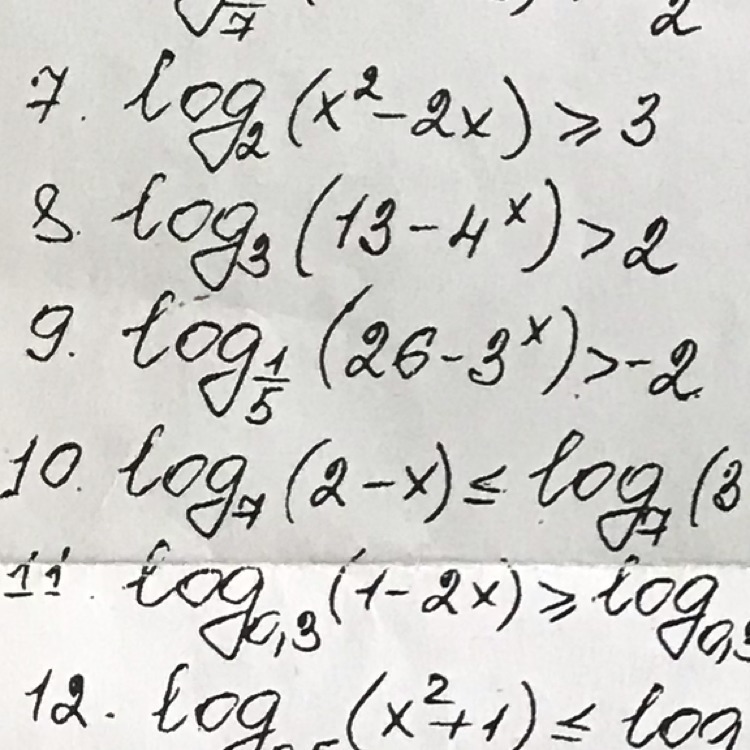 7. log₂(x²-2x) ≥ 3
8. log₃(13-4ˣ) > 2
9. log_{1/5}(26-3ˣ) > -2
10. log₇(2-x) ≤ log₇(3
11. log_{0,3}(1-2x) ≥ log_{0,3}
12. (x²+1) ≤ log